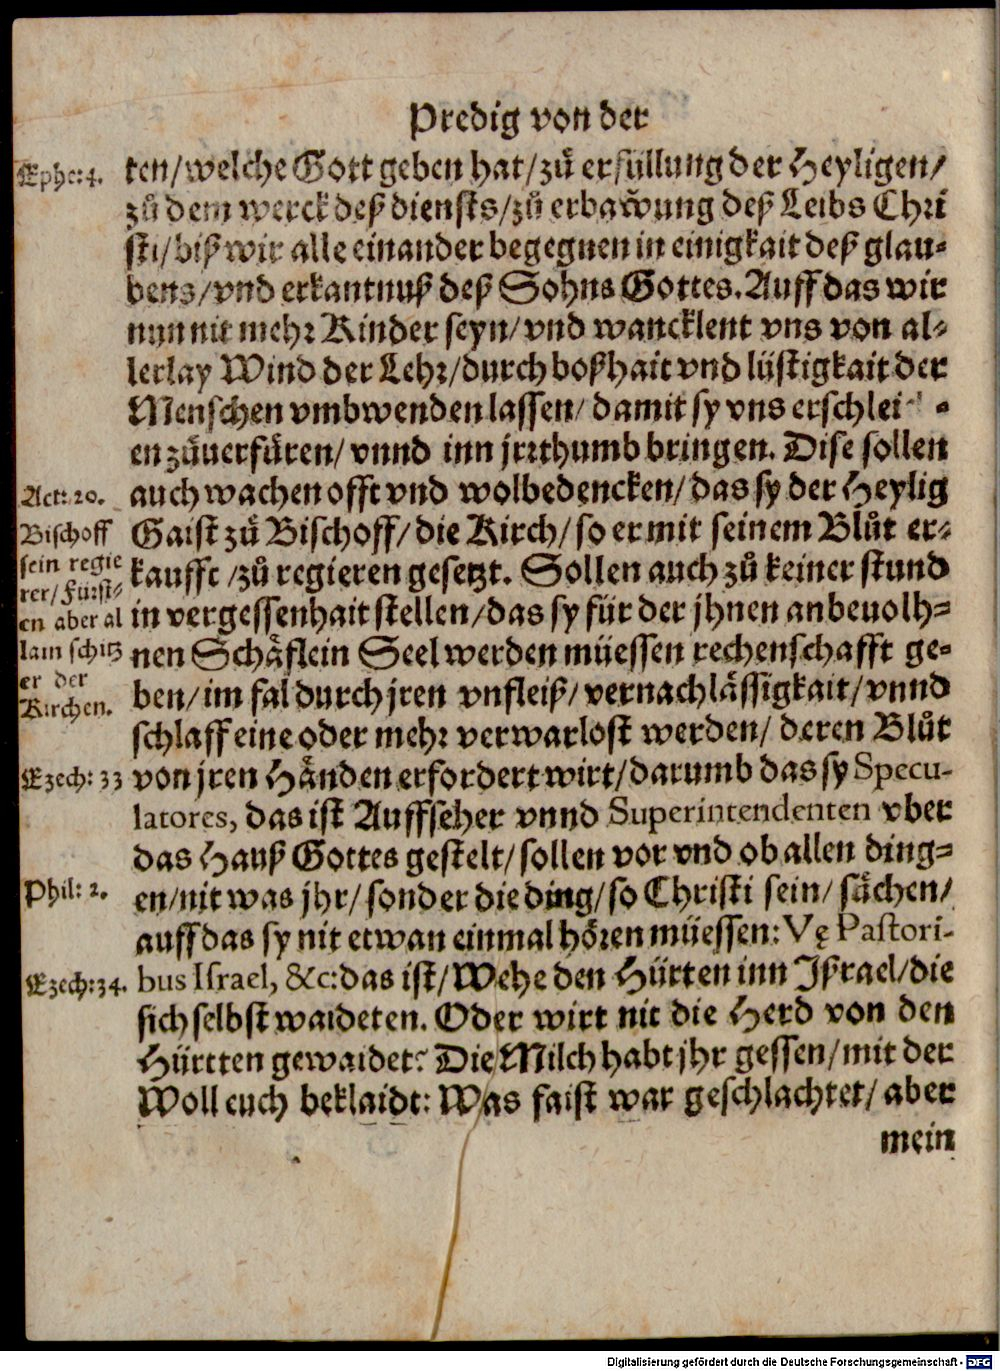 Predig von der
Ephe: 4.
ten/ welche Gott geben hat/ zů erfüllung der Heyligen/
zů dem werck deß diensts/ zů erbawung deß Leibs Chri
sti/ biß wir alle einander begegnen in einigkait deß glau-
bens/ vnd erkantnuß deß Sohns Gottes. Auff das wir
nun nit mehr Kinder seyn/ vnd wancklent vns von al-
lerlay Wind der Lehr/ durch boßhait vnd lüstigkait der
Menschen vmbwenden lassen/ damit sy vns
en zůuerfüren/ vnnd inn jrrthumb bringen. Dise sollen
Act: 20.
auch wachen offt vnd wolbedencken/ das sy der Heylig
Bischoff
sein regie
rer/ Fürst-
en aber al
lain schitz
er der
Kirchen.
Gaist zů Bischoff/ die Kirch/ so er mit seinem Blůt er-
kaufft/ zů regieren gesetzt. Sollen auch zů keiner stund
in vergessenhait stellen/ das sy für der jhnen anbeuolh-
nen Schäflein Seel werden müessen rechenschafft ge-
ben/ im fal durch jren vnfleiß/ vernachlässigkait/ vnnd
schlaff eine oder mehr verwarlost werden/ deren Blůt
Ezech: 33
von jren Händen erfordert wirt/ darumb das sy Specu-
latores, das ist Auffseher vnnd Superintendenten vber
das Hauß Gottes gestelt/ sollen vor vnd ob allen ding-
Phil: 2.
en/ nit was jhr/ sonder die ding/ so Christi sein/ süchen/
auff das sy nit etwan einmal hören müessen: Vę Pastori-
Ezech: 34.
bus Israel, &c: das ist/ Wehe den Hürten inn Jßrael/ die
sich selbst waideten. Oder wirt nit die Herd von den
Hürtten gewaidet? Die Milch habt jhr gessen/ mit der
Woll euch beklaidt: Was faist war geschlachtet/ aber
mein
Digitalisierung gefördert durch die Deutsche Forschungsgemeinschaft - DFG